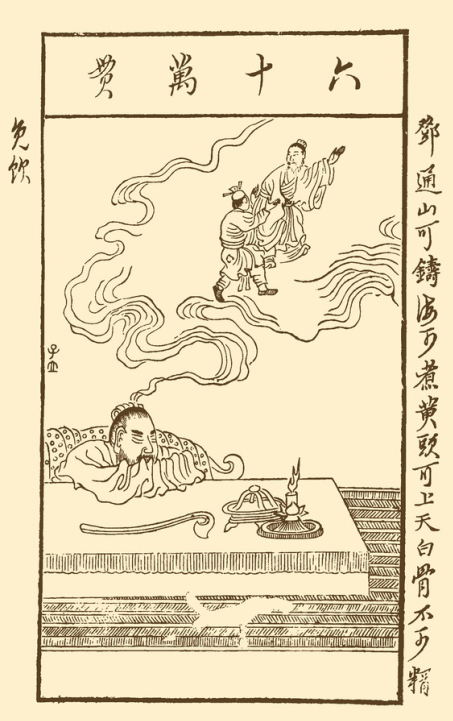 六十萬貫
鄧通山可鑄海可煮黃頭可上天白骨不可糈
免飲
子立